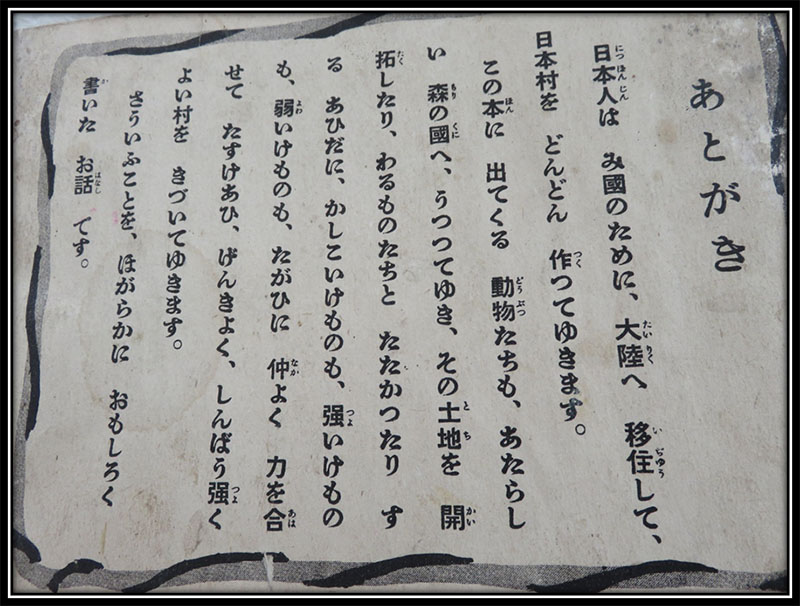 あとがき
日本人は　み國のために、大陸へ　移住して、
日本村を　どんどん　作つてゆきます。
この本に　出てくる　動物たちも、あたらし
い　森の國へ、うつつてゆき、その土地を　開
拓したり、わるものたちと　たたかつたり　す
る　あひだに、かしこいけものも、强いけもの
も、弱いけものも、たがひに　仲よく　力を合
せて　たすけあひ、げんきよく、しんばう强く
よい村を　きづいてゆきます。
さういふことを、ほがらかに　おもしろく
書いた　お話　です。